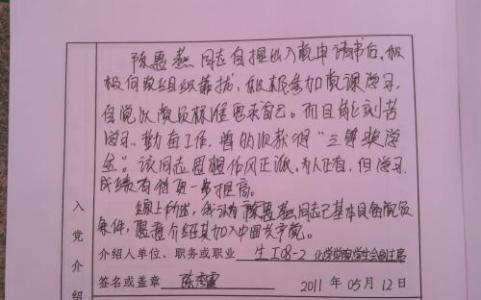 陈惠燕同志自提出入党申请书后,积
极向党组织靠拢,积极参加党课学习,
自觉以党员标准要求自己。而且能刻苦
学习、勤奋工作,曾的收获得“三等奖学
金”。该同志思想作风正派,为人正直,但学习
成绩有待更一步提高。
综上所述,我认为陈惠燕同志已基本具备党员
条件,愿意介绍其加入中国共产党。
入党介绍
介绍人单位、职务或职业 生工08-2 化学学院学生会副主席
签名或盖章 陈秀霞
2011 年 05 月 12 日